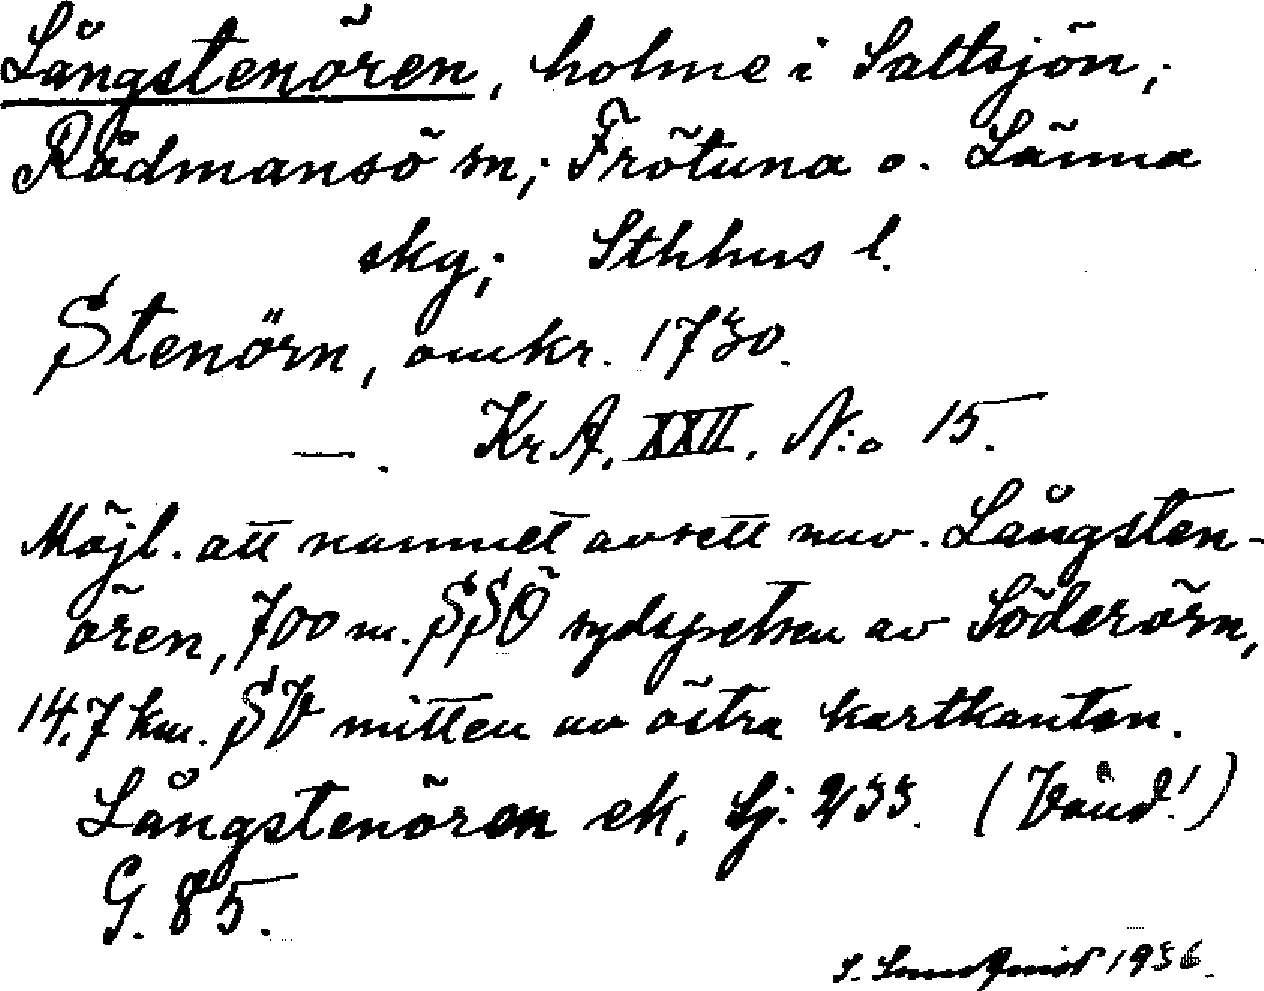 Långstenören, holme i Saltsjön;
Rådmansö sn; Frötuna o. Länna
skg; Sthhus l.
Stenörn, omkr. 1730.
—. KrA. XXII. N:o 15.
Möjl. att namnet avsett nuv. Långsten-
ören, 700 m. SSÖ sydspetsen av Söderörn,
14,7 km. SV mitten av östra kartkanten.
Långstenören ek. Sj. 233. (Vänd!)
G. 85.
S. 1936.